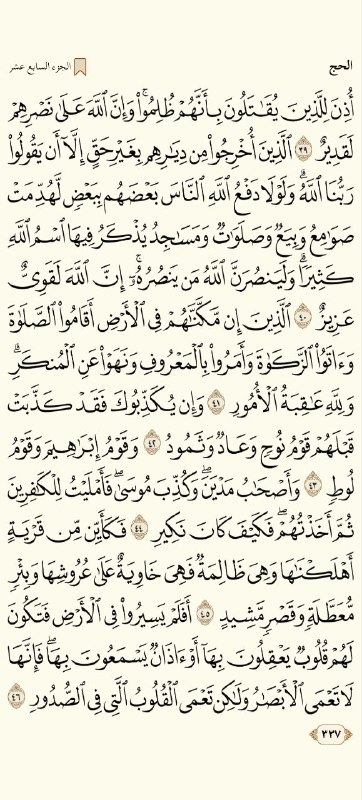 الحج
الجزء السابع عشر
أُذِنَ لِلَّذِينَ يُقَٰتَلُونَ بِأَنَّهُمْ ظُلِمُوا۟ ۚ وَإِنَّ ٱللَّهَ عَلَىٰ نَصْرِهِمْ
لَقَدِيرٌ ٣٩ ٱلَّذِينَ أُخْرِجُوا۟ مِن دِيَٰرِهِم بِغَيْرِ حَقٍّ إِلَّآ أَن يَقُولُوا۟
رَبُّنَا ٱللَّهُ ۗ وَلَوْلَا دَفْعُ ٱللَّهِ ٱلنَّاسَ بَعْضَهُم بِبَعْضٍ لَّهُدِّمَتْ
صَوَٰمِعُ وَبِيَعٌ وَصَلَوَٰتٌ وَمَسَٰجِدُ يُذْكَرُ فِيهَا ٱسْمُ ٱللَّهِ
كَثِيرًا ۗ وَلَيَنصُرَنَّ ٱللَّهُ مَن يَنصُرُهُۥٓ ۗ إِنَّ ٱللَّهَ لَقَوِىٌّ
عَزِيزٌ ٤٠ ٱلَّذِينَ إِن مَّكَّنَّٰهُمْ فِى ٱلْأَرْضِ أَقَامُوا۟ ٱلصَّلَوٰةَ
وَءَاتَوُا۟ ٱلزَّكَوٰةَ وَأَمَرُوا۟ بِٱلْمَعْرُوفِ وَنَهَوْا۟ عَنِ ٱلْمُنكَرِ ۗ
وَلِلَّهِ عَٰقِبَةُ ٱلْأُمُورِ ٤١ وَإِن يُكَذِّبُوكَ فَقَدْ كَذَّبَتْ
قَبْلَهُمْ قَوْمُ نُوحٍ وَعَادٌ وَثَمُودُ ٤٢ وَقَوْمُ إِبْرَٰهِيمَ وَقَوْمُ
لُوطٍ ٤٣ وَأَصْحَٰبُ مَدْيَنَ ۖ وَكُذِّبَ مُوسَىٰ فَأَمْلَيْتُ لِلْكَٰفِرِينَ
ثُمَّ أَخَذْتُهُمْ ۖ فَكَيْفَ كَانَ نَكِيرِ ٤٤ فَكَأَيِّن مِّن قَرْيَةٍ
أَهْلَكْنَٰهَا وَهِىَ ظَالِمَةٌ فَهِىَ خَاوِيَةٌ عَلَىٰ عُرُوشِهَا وَبِئْرٍ
مُّعَطَّلَةٍ وَقَصْرٍ مَّشِيدٍ ٤٥ أَفَلَمْ يَسِيرُوا۟ فِى ٱلْأَرْضِ فَتَكُونَ
لَهُمْ قُلُوبٌ يَعْقِلُونَ بِهَآ أَوْ ءَاذَانٌ يَسْمَعُونَ بِهَا ۖ فَإِنَّهَا
لَا تَعْمَى ٱلْأَبْصَٰرُ وَلَٰكِن تَعْمَى ٱلْقُلُوبُ ٱلَّتِى فِى ٱلصُّدُورِ ٤٦
٣٣٧